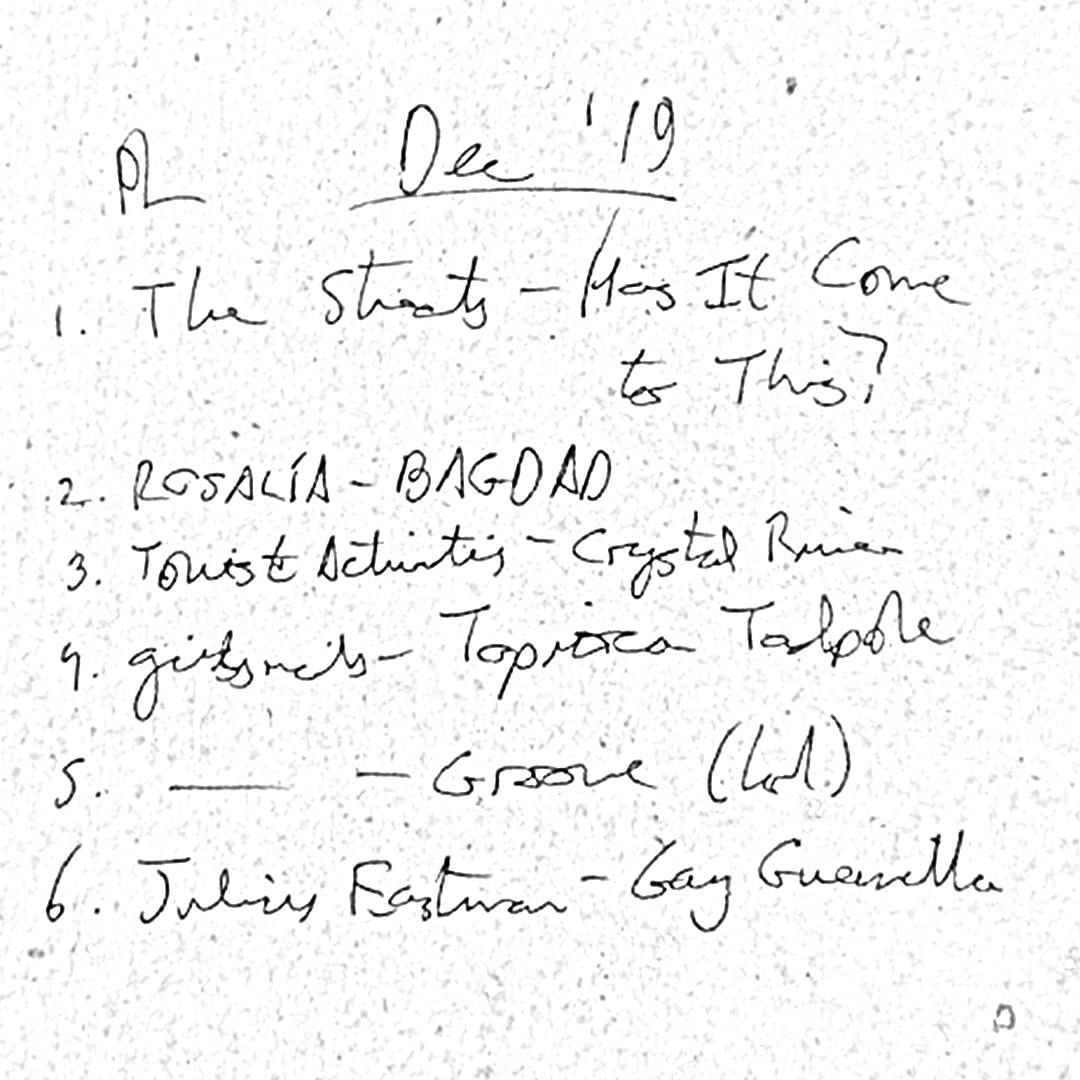 PL Dec '19
1. The Streets - Has It Come
to This?
2. ROSALÍA - BAGDAD
3. Tourist Activities - Crystal River
4. - Tapioca Tadpole
5. —— - Groove (lol)
6. Julius Eastman - Gay Guerrilla